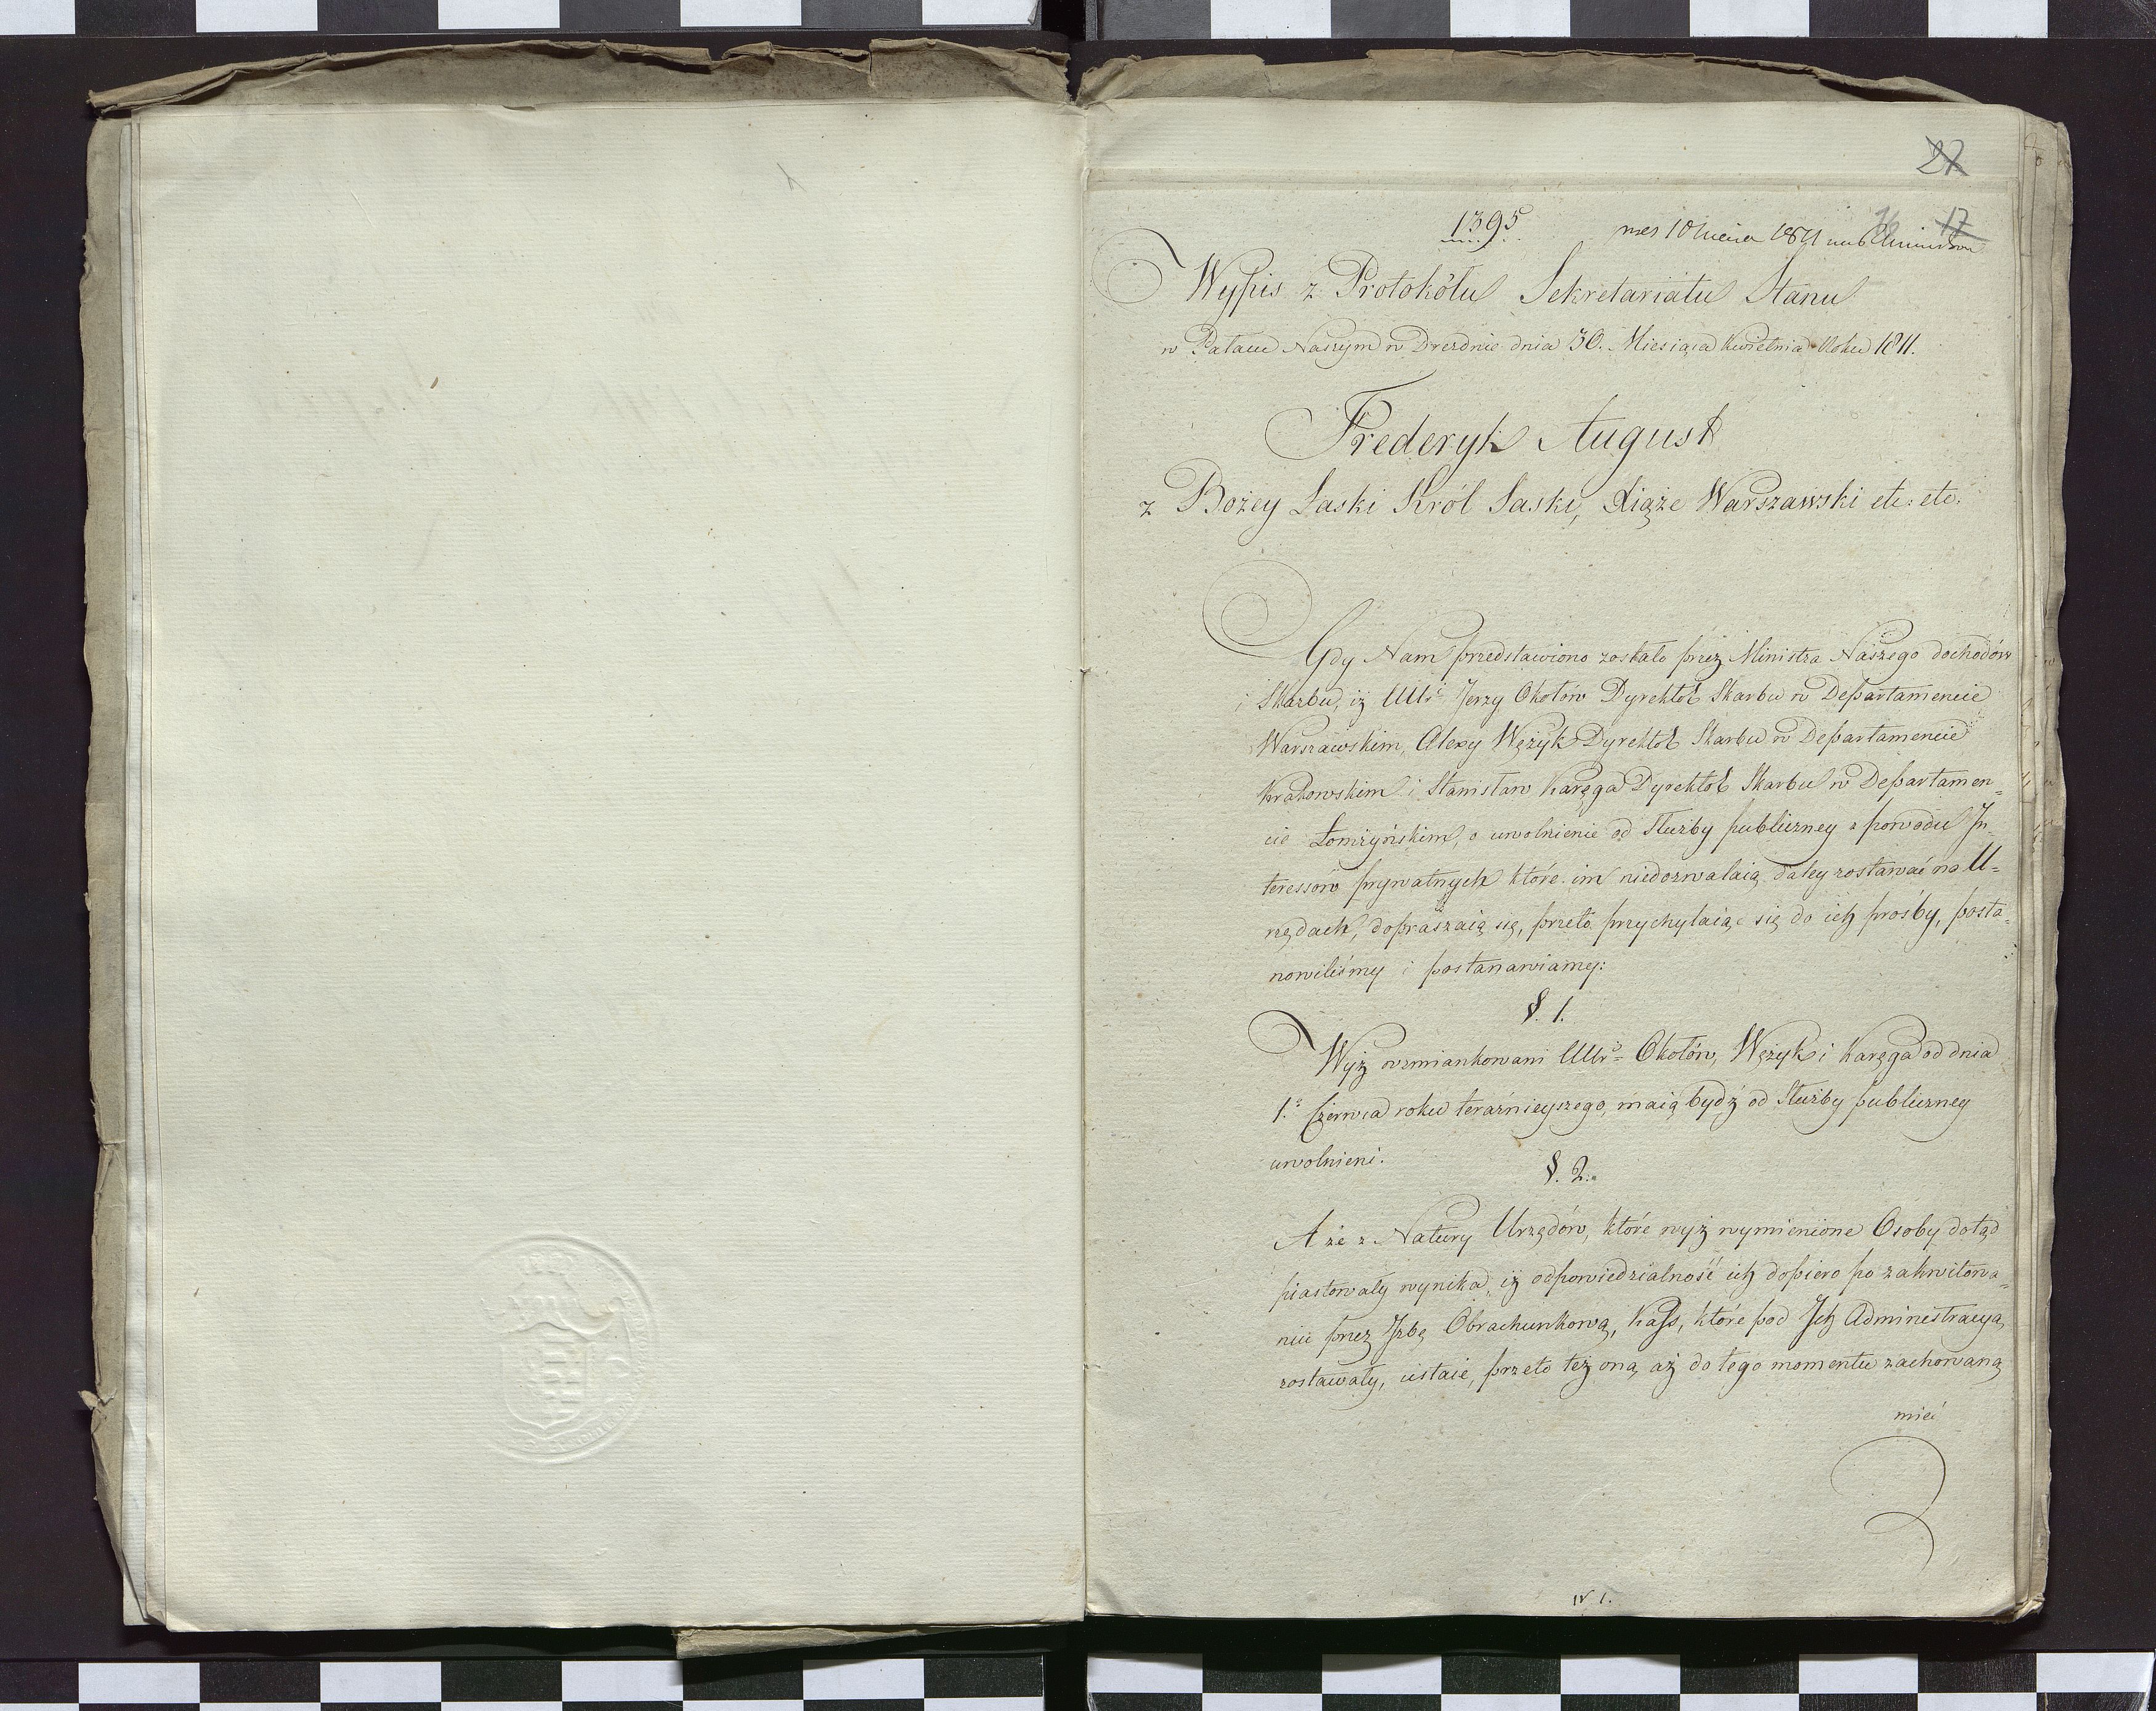 1
27
1395
16
17
Wypis z Protokółu Sekretariatu Stanu
w Pałacu Naszym w Dreznie dnia 30. Miesiąca Kwietnia Roku 1811.
Frederyk August
z Bożey Łaski Król Saski, Xiąże Warszawski etc: etc:
Gdy Nam przedstawiono zostało przez Ministra Naszego dochodów
i Skarbu, iż UUr: Jerzy Okołów Dyrektor Skarbu w Departamencie
Warszawskim, Alexy Wężyk Dyrektor Skarbu w Departamencie
Krakowskim i Stanisław Karęga Dyrektor Skarbu w Departamen=
cie Łomżyńskim, o uwolnienie od Służby publiczney z powodu In=
teressów prywatnych które im niedozwalaią daley zostawać na U=
rzędach, dopraszaią się, przeto przychylaiąc się do ich prośby, posta=
nowiliśmy i postanawiamy:
§. 1.
Wyż wzmiankowani UUr: Okołów, Wężyk i Karęga od dnia
1.º Czerwca roku teraźnieyszego, maią bydź od Służby publiczney
uwolnieni.
§. 2.
A że z Natury Urzędów, które wyż wymienione Osoby dotąd
piastowały wynika, iż odpowiedzialność ich dopiero po zakwitowa=
niu przez Izbę Obrachunkową, Kass, które pod Ich Administracyą
zostawały, ustaie, przeto też oną aż do tego momentu zachowaną
mieć
N 1.